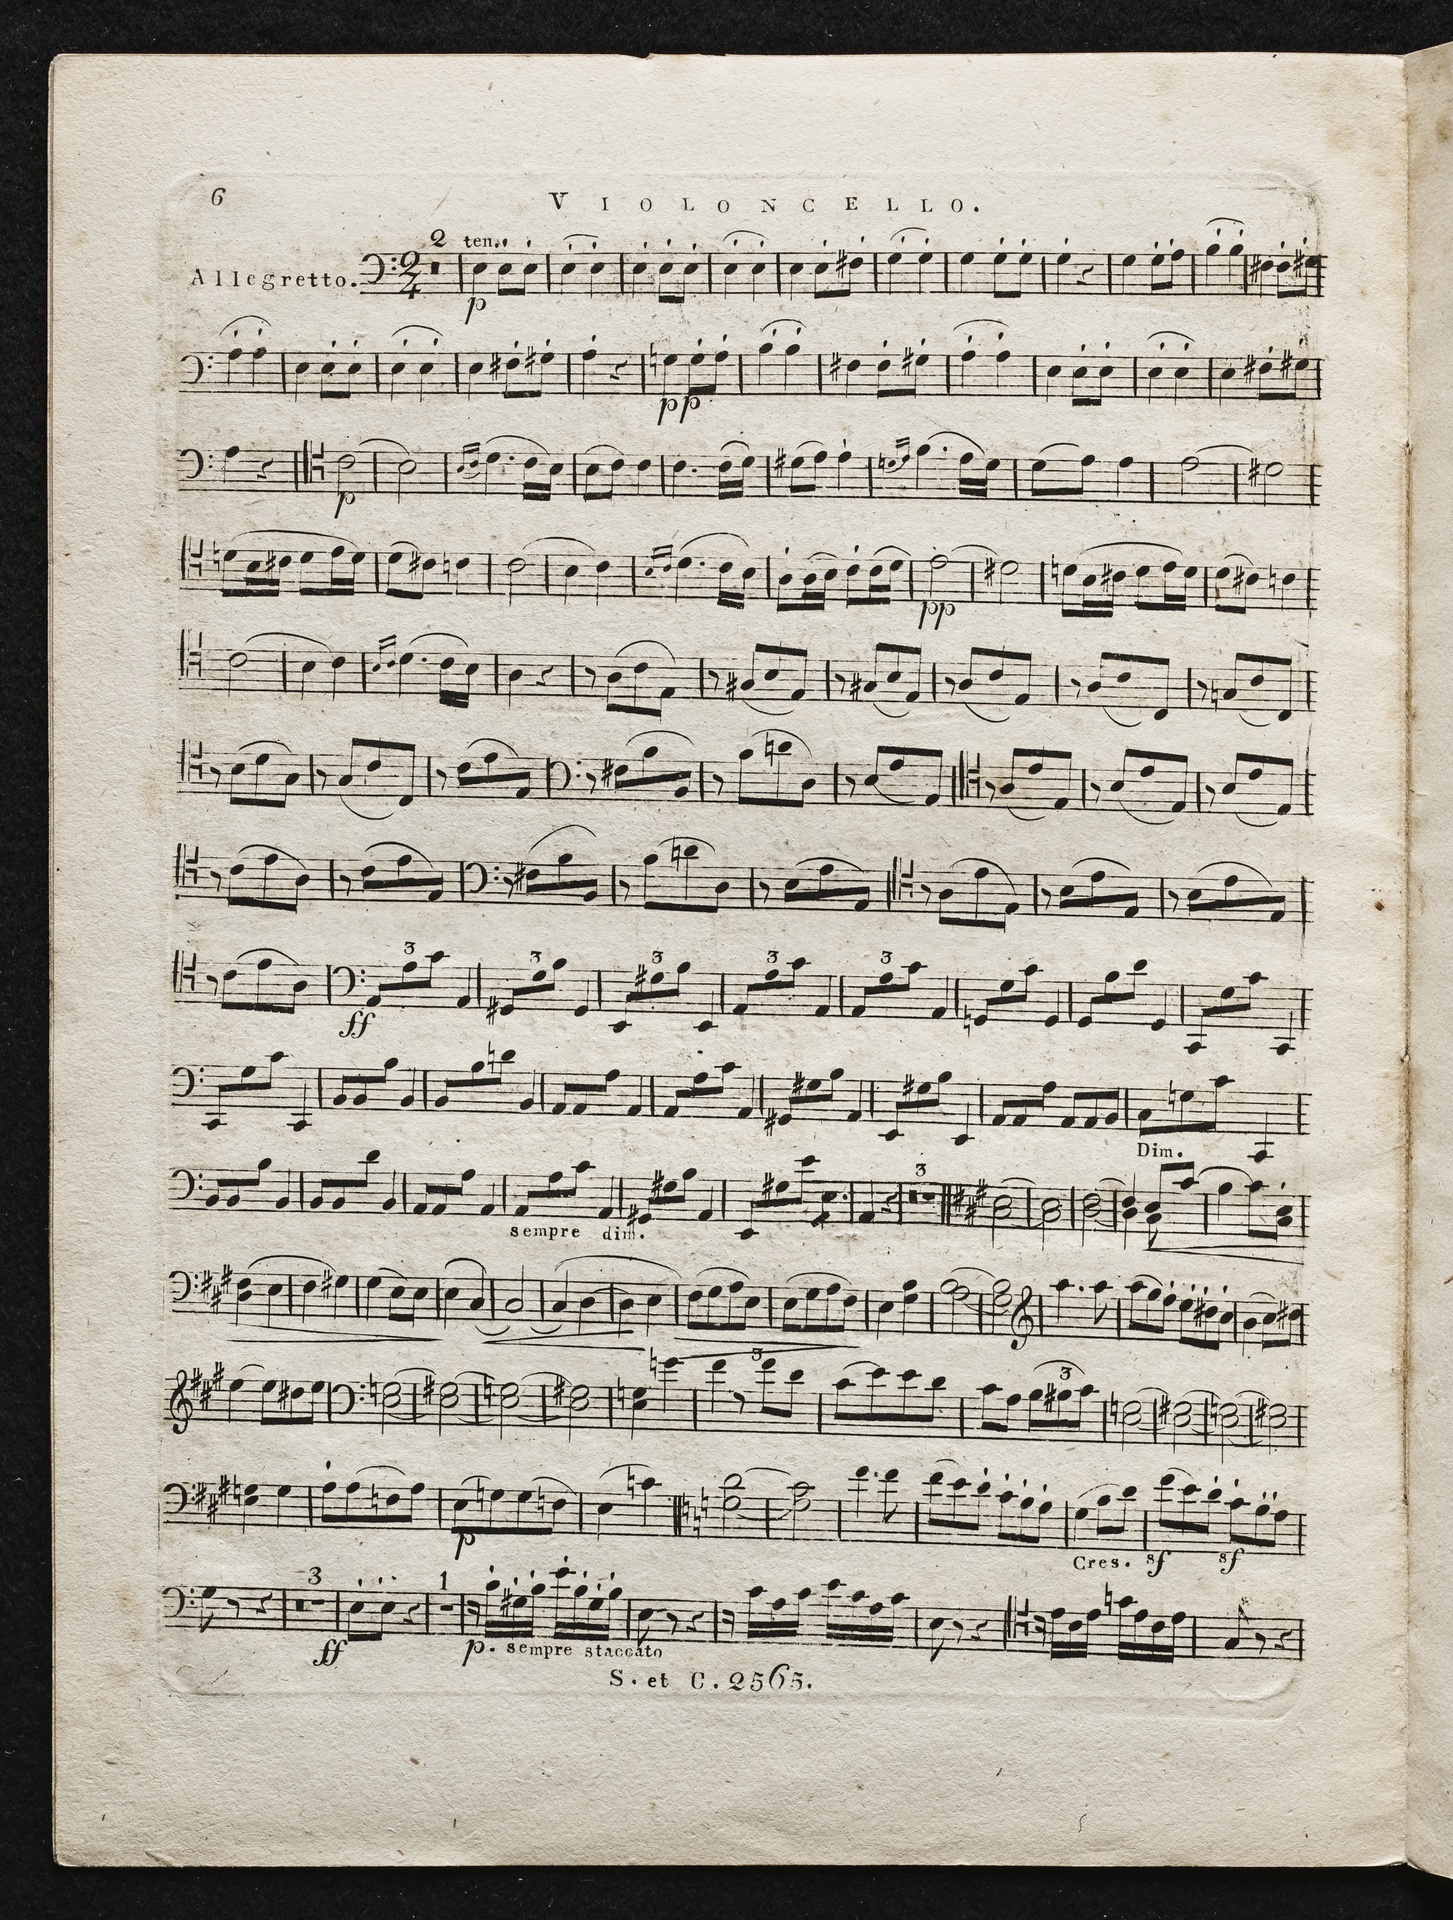 6
VIOLONCELLO.
2 ten.
Allegretto. 2/4
p
pp
p
pp
3 3 3 3 3
ff
Dim.
3
sempre dim.
3
3
p
Cres. sf sf
3 1
ff p. sempre staccato
S. et C. 2565.